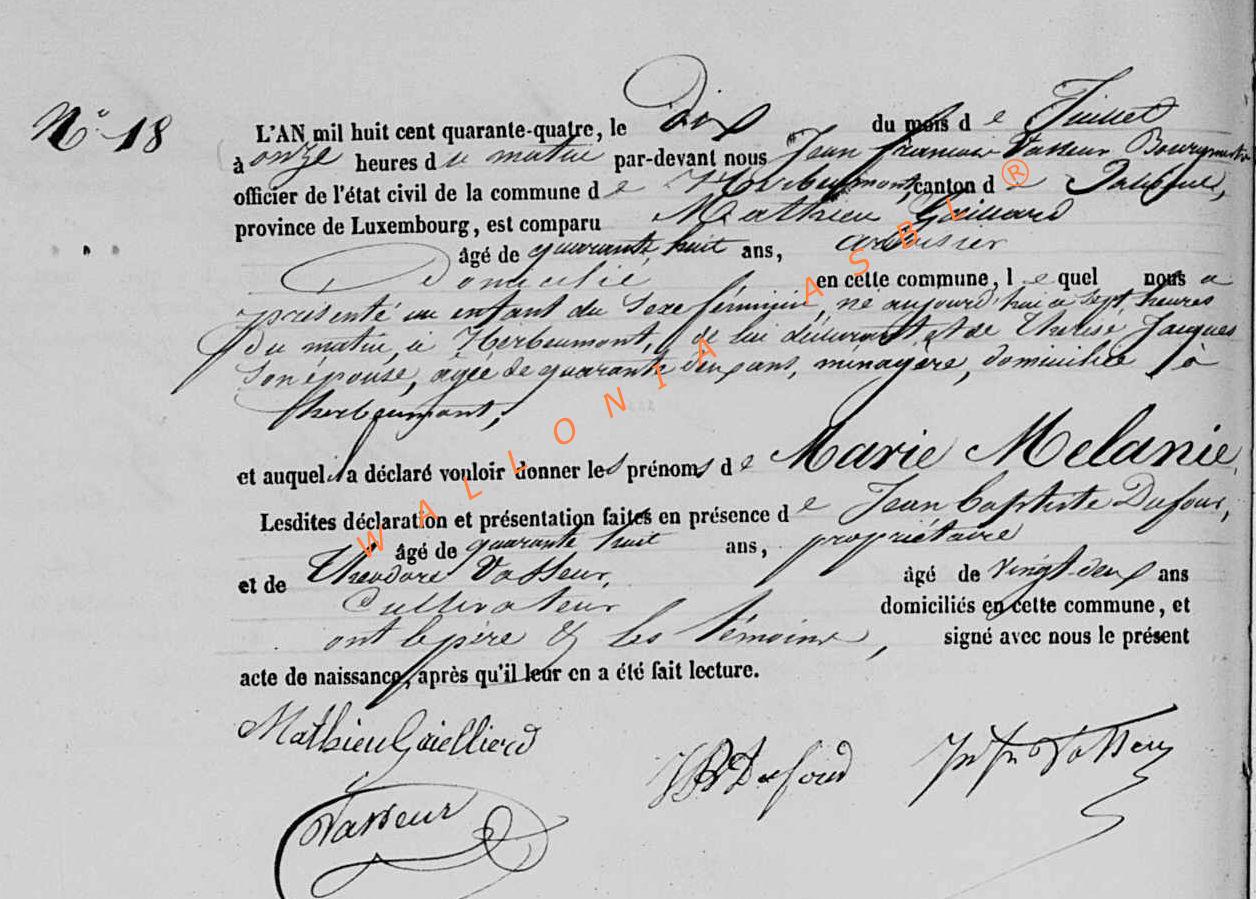 N° 18
L'AN mil huit cent quarante-quatre, le Dix du mois de Juillet
à onze heures du matin par-devant nous Jean francois Vasseur Bourgmestre
officier de l'état civil de la commune de Herbeumont, canton de
province de Luxembourg, est comparu Mathieu Gaillard
âgé de quarante huit ans, ardoisier
Domicilié en cette commune, lequel nous a
présenté un enfant du Sexe féminin, né aujourd'hui à sept heures
du matin, à Herbeumont, de lui déclarant et de Thérèse Jacques
Son épouse, agée de quarante deux ans, ménagère, domiciliée à
herbeumont,
et auquel il a déclaré vouloir donner les prénoms de Marie Melanie
Lesdites déclaration et présentation faites en présence de Jean Baptiste Dufour,
âgé de quarante huit ans, propriétaire
et de Théodore Vasseur, âgé de vingt-deux ans
Cultivateur domiciliés en cette commune, et
ont le père & les témoins, signé avec nous le présent
acte de naissance, après qu'il leur en a été fait lecture.
Mathieu Gaielliard
JB Dufour
Jn fs Vasseur
Vasseur
WALLONIA ASBL ®